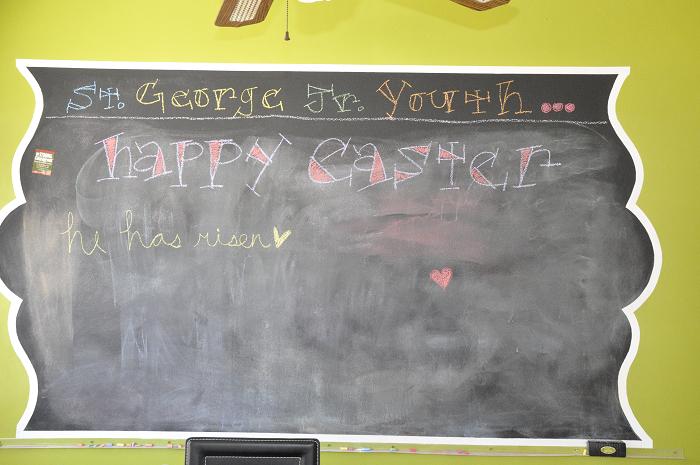 St. George Jr. Youth...
happy Easter
he has risen